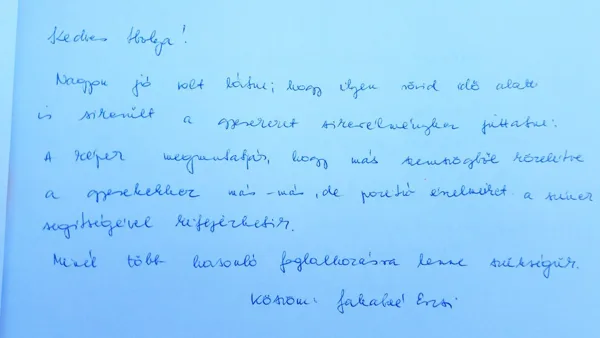 Kedves Ibolya!
Nagyon jó volt látni, hogy ilyen rövid idő alatt
is sikerült a gyereket sikerélményhez juttatni.
A képek megmutatják, hogy más szemszögből közelítve
a gyerekekhez más-más, de pozitív érzelmeket a színek
segítségével kifejezhetik.
Minél több hasonló foglalkozásra lenne szükségük.
Köszöni: Jakabné Erzsi